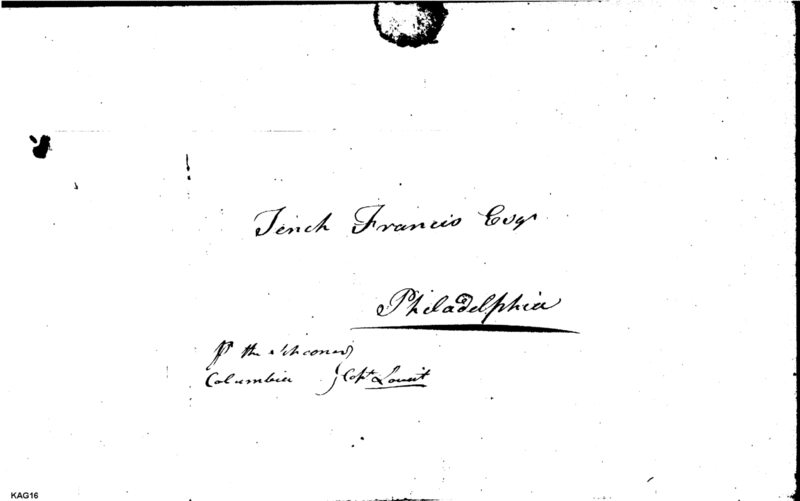 Tench Francis Esqr
Philadelphia
pr the schooner
Columbia } Capt
KAG16